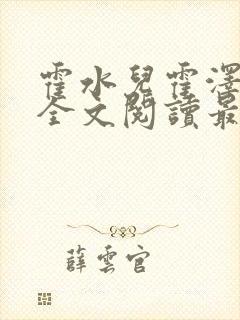 霍水兒霍澤
全文閱讀最
薛雲官